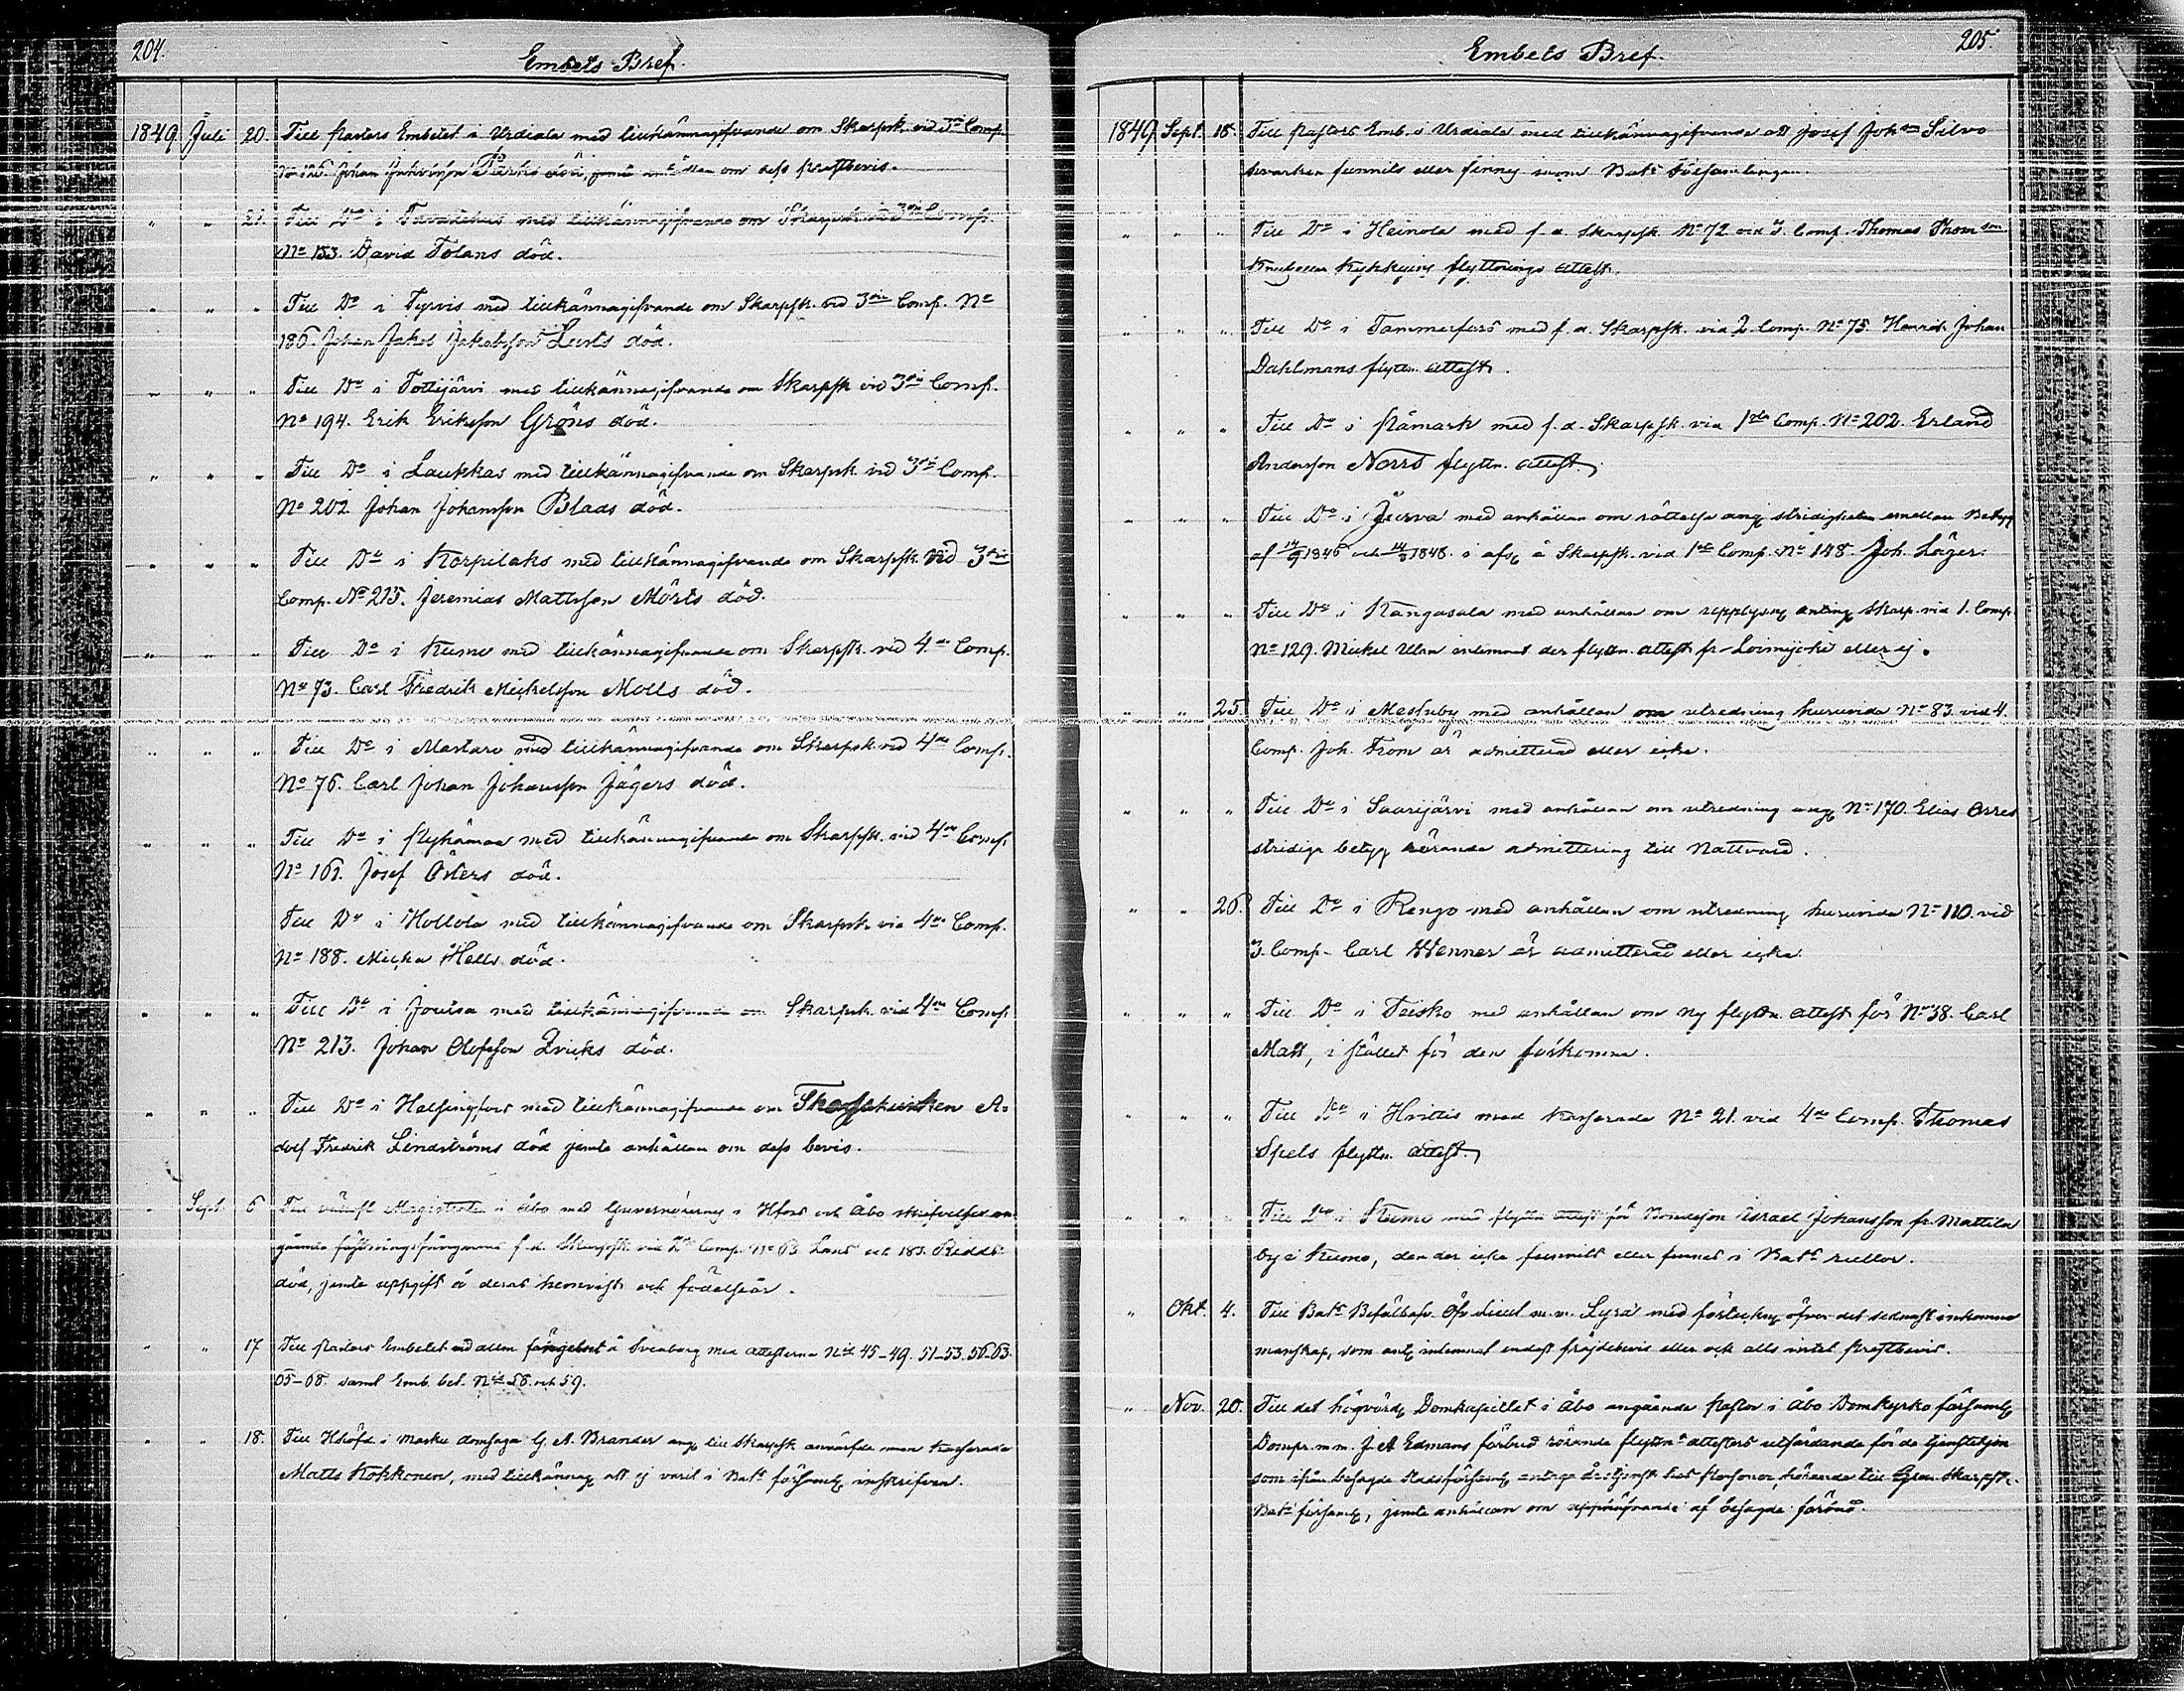 204.
Embets Bref.
1849 Juli 20. Till Pastors Embetet i Urdiala med tillkännagifvande om Skarpsk. vid 3die Comp.
No 126. Johan Johansson död, jemte om dess prestbevis.
" " 21. Till Do i Tavastehus med tillkännagifvande om Skarpsk. vid 3die Comp.
No 153. David Tolans död.
" " " Till Do i Tyrvis med tillkännagifvande om Skarpsk. vid 3die Comp. No
186. Johan Jakob Jakobsson Lusts död.
" " " Till Do i Tottijärvi med tillkännagifvande om Skarpsk vid 3die Comp.
No 194. Erik Eriksson Gröns död.
" " " Till Do i Laukkas med tillkännagifvande om Skarpsk vid 3die Comp.
No 202 Johan Johansson Blads död.
" " " Till Do i Korpilaks med tillkännagifvande om Skarpsk. vid 3die
Comp. No 215. Jeremias Mattsson Mörts död.
" " " Till Do i Kumo med tillkännagifvande om Skarpsk. vid 4de Comp.
No 73. Carl Fredrik Mickelsson Molls död.
" " " Till Do i med tillkännagifvande om Skarpsk vid 4de Comp.
No 76. Carl Johan Johansson Jägers död.
" " " Till Do i med tillkännagifvande om Skarpsk. vid 4de Comp.
No 161. Josef Östers död.
Till Do i Hollola med tillkännagifvande om Skarpsk vid 4de Comp.
No 188. Hells död.
" " " Till Do i Joutsa med tillkännagifvande om Skarpsk. vid 4de Comp.
No 213. Johan Olofsson Qvicks död.
" " " Till Do i Helsingfors med tillkännagifvande om A-
dolf Fredrik Lindströms död jemte anhållan om dess bevis.
" Sept. 6 Till Magistraten i Åbo med i Hfors och Åbo skrifvelser an-
gående f.d. Skarpsk. vid 2 Comp. No 63 och 183.
död, jemte uppgift å deras hemvist och födelseår.
" " 17 Till Pastors Embetet vid fängelset å Sveaborg med attesterna No 45-49. 51-53. 56. 63.
65-68. samt Emb. bet. No 58. och 59.
" " 18. Till Hhöfd. i Masku domsaga G. A. Brander ang. till Skarpsk
Matts Kokkonen, med tillkännag. att ej varit i Bat. församl. inskrifven.
Embets Bref.
205.
1849 Sept. 18. Till Pastors Emb. i Urdiala med tillkännagifvande att Josef Johsson Silvo
hvarken funnits eller finnes inom Bats församlingen.
" " " Till Do i Heinola med f. d. Skarpsk. No 72 vid 3. Comp. Thomas Thomsson
flyttnings attest.
" " " Till Do i Tammerfors med f. d. Skarpsk. vid 2. Comp. No 75. Henrik Johan
Dahlmans flyttn. attest.
" " " Till Do i Påmark med f. d. Skarpsk. vid 1sta Comp. No 202. Erland
Andersson Norrs flyttn. attest.
" " " Till Do i Jurva med anhållan om rättelse ang. stridigheten emellan Betyg
af 14/9 1845 och 14/3 1848. i afs. å Skarpsk. vid 1sta Comp. No 148. Joh. Läger.
" " " Till Do i Kangasala med anhållan om upplysn. Skarp. vid 1. Comp.
No 129. Mickel Ulan inlemnat der flyttn. attest fr. Loimijoki eller ej.
" " 25. Till Do i Messuby med anhållan om utredning huruvida No 83. vid 4.
Comp. Joh. From är admitterad eller icke.
" " " Till Do i Saarijärvi med anhållan om utredning ang. No 170. Elias Orres
stridiga betyg rörande admittering till Nattvard.
" " 26. Till Do i Rengo med anhållan om utredning huruvida No 110. vid
3. Comp. Carl Wenner är admitterad eller icke.
" " " Till Do i Teisko med anhållan om ny flyttn. attest för No 38. Carl
Matt, i stället för den förkomna.
" " " Till Do i Hvittis med Kasserade No 21. vid 4de Comp. Thomas
Spels flyttn. attest.
" " " Till Do i Kumo med flyttn attest för Bondeson Israel Johansson fr. Mattila
by i Kumo, den der icke funnits eller finnes i Bats rullor.
" Okt. 4. Till Bats Befälhafv. Öfv. Lieut. m. m. Lyra med förteckn. öfver det sednast inkomna
manskap, som ant. inlemnat endast frejdebevis eller ock alls intet prestbevis.
" Nov. 20. Till det högvörd. Domkapitlet i Åbo angående Pastor i Åbo Domkyrko församl.
Dompr. m. m. J. A. Edmans förbud rörande flyttn. attesters utfärdande för de tjenstehjon
som ifrån besagde Stadsförsaml. antaga årstjenst hos personer, hörande till Gren. Skarpsk.
Bats församl., jemte anhållan om upphäfvande af besagde förbud.